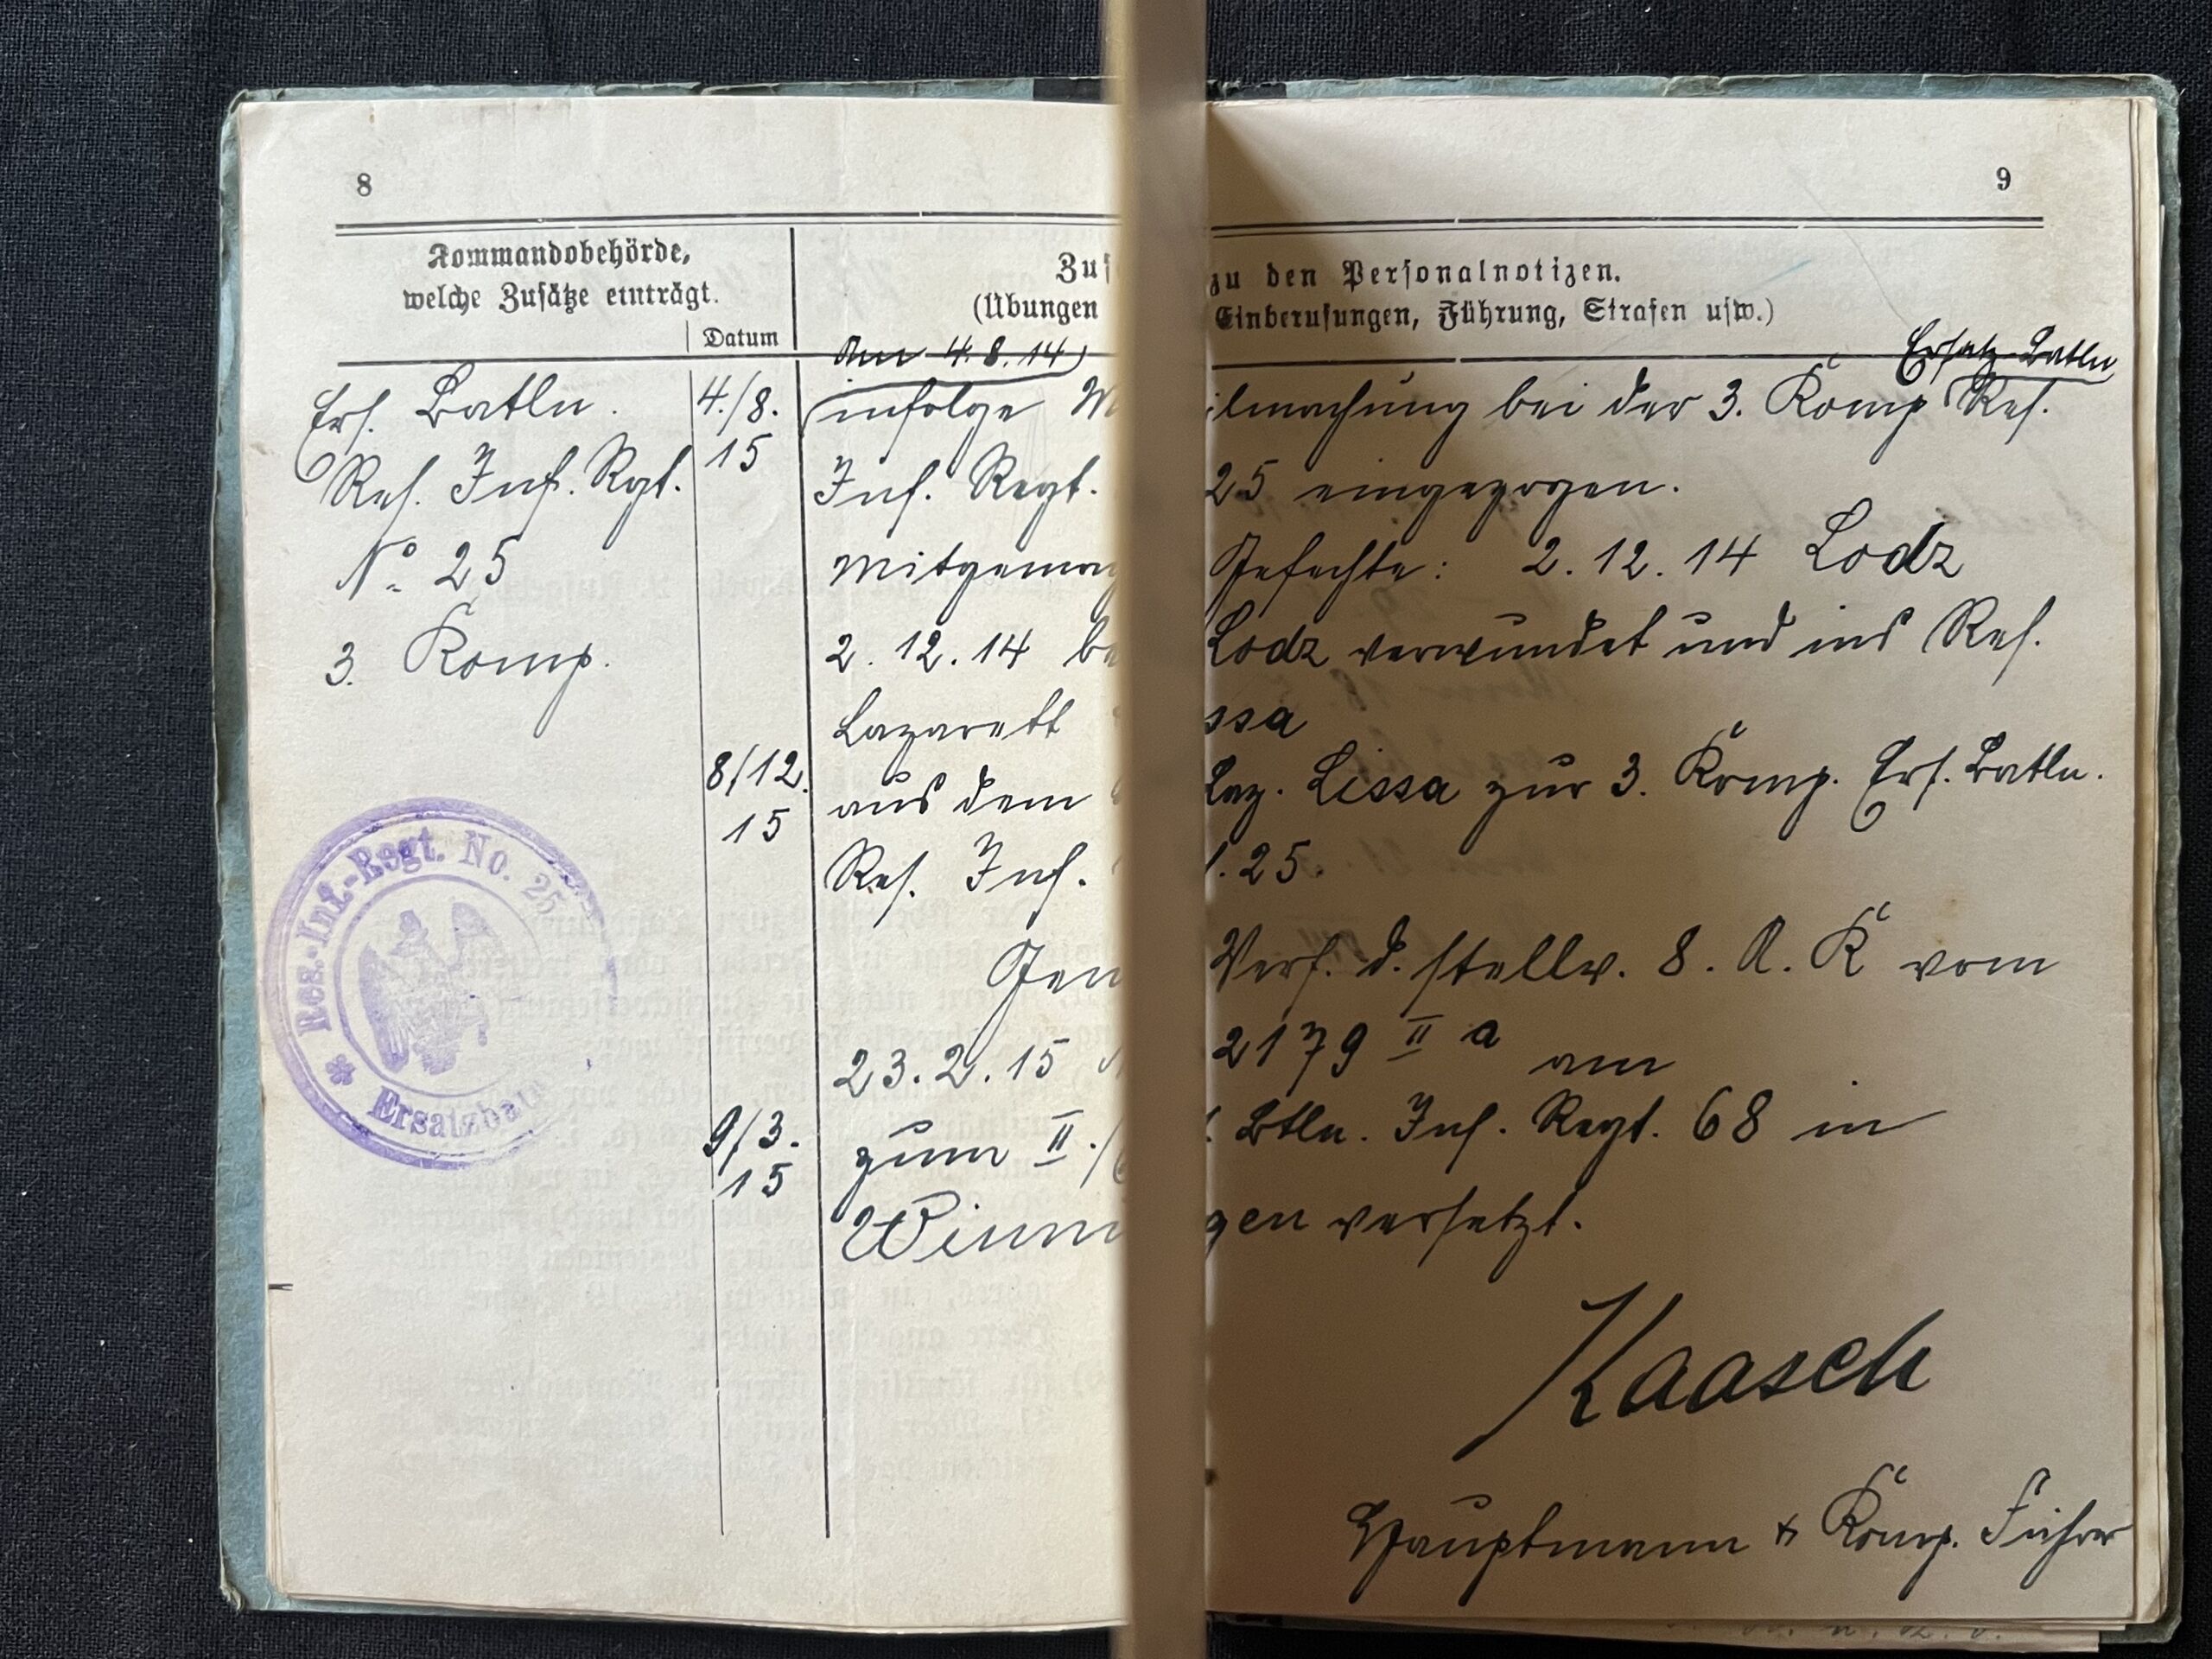 8
Kommandobehörde,
welche Zusätze einträgt.
Datum
Zus
(Übungen
Am 4.8.14)
Ers. Batln.
4./8.
15
infolge M
Res. Inf. Rgt.
Inf. Regt.
No. 25
Mitgemac
3. Komp.
2.12.14 be
Lazarett
8/12.
15
aus dem
Res. Inf.
Gem
23.2.15
9/3.
15
zum II./
Winni
Res.-Inf.-Regt. No. 25
Ersatzbat
9
zu den Personalnotizen.
Einberufungen, Führung, Strafen usw.)
Ersatz Batln
ilmachung bei der 3. Komp Res.
25 eingezogen.
Gefechte: 2.12.14 Lodz
Lodz verwundet und ins Res.
ssa
Laz. Lissa zur 3. Komp. Ers. Batln.
. 25.
Verf. d. stellv. 8. A. K vom
2179 II a am
Btln. Inf. Regt. 68 in
gen versetzt.
Kaasch
Hauptmann & Komp. Führer